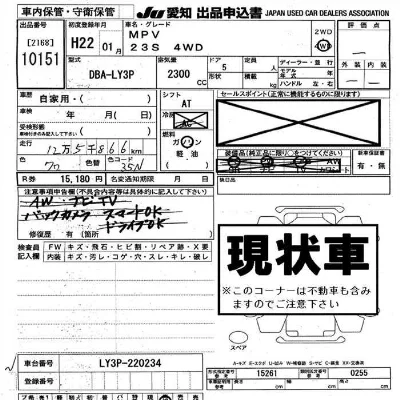 車内保管・守衛保管
JU 愛知 出品申込書 JAPAN USED CAR DEALERS ASSOCIATION
出品番号
[2168]
10151
初度登録年月
H22 年 01 月
車名・グレード
MPV
23S 4WD
2WD
4WD
評価点
外装 内装
型式
DBA-LY3P
排気量
2300 CC
ドア
5
形状
定員 人
積載 kg
ディーラー・並行
モデル年式 年
ハンドル 左・右
車歴
自家用・( )
車検
年 月( 日)
受検形態
走行
12万5千866 km
色 クロ 色替 カラーコード 35N
シフト
AT
冷房
AC
燃料
ガソリン
軽油
( )
セールスポイント(正常に機能するものに限ります)
装備品(純正品に限り○をつけてください)
新車保証書
有・無
R券 15,180 円 名変期限 月 日
検日品
注意事項申告欄(不具合内容等は具体的に記入して下さい)
AW ナビ TV
バックカメラ スマートOK
ドライブOK
修復歴 有( 箇所)
検査員記入欄
FW キズ・飛石・ヒビ割・リペア跡・X要
内装 キズ・汚レ・コゲ・穴・スレ・キレ・破レ
現状車
※このコーナーは不動車も含みますのでご注意下さい
スペア
車台番号 LY3P-220234
登録番号
型式指定番号 15261 類別区分番号 0255